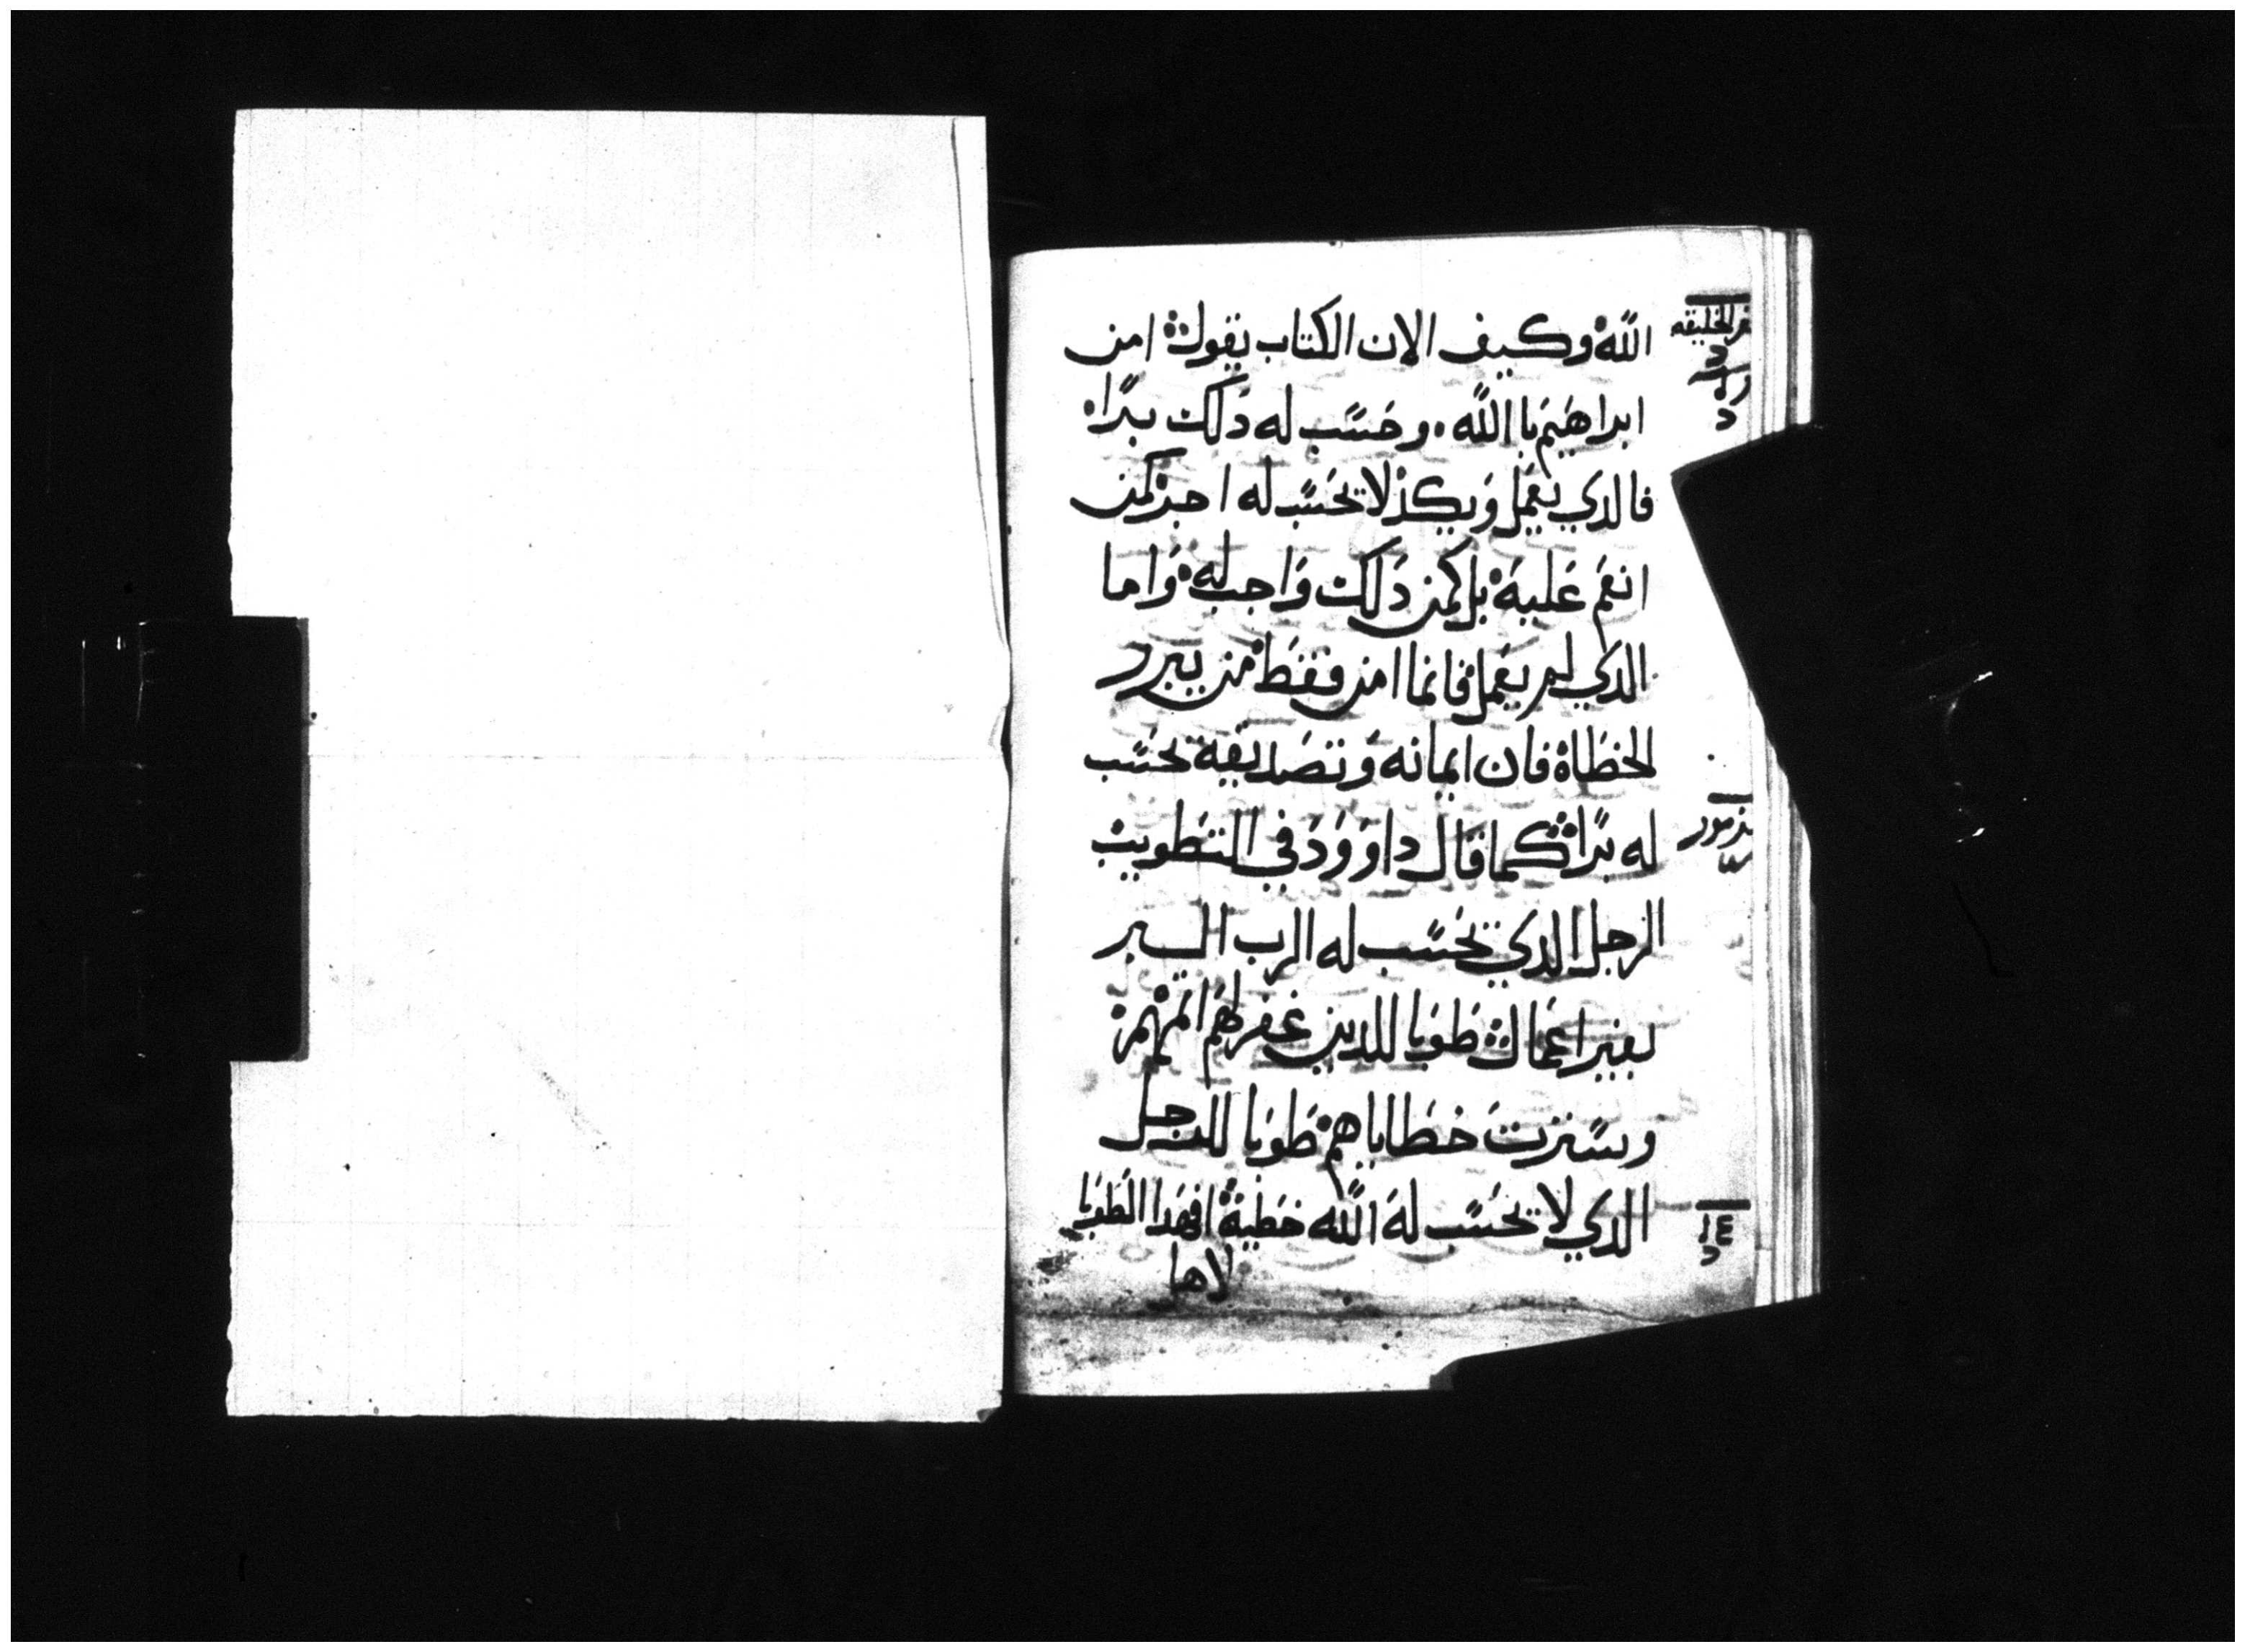 الله وكيف الان الكتاب يقول امن
ابراهيم باالله. وحسب له دلك برا.
فالدي يعمل ويكد لا تحسب له اجر كمن
انعم عليه بل كمن دلك واجب له واما
الدي لم يعمل فانما امن فقط من يبرر
الخطاه فان ايمانه وتصديقه تحسب
له برا كما قال داوود في التطويب
الرجل الدي تحسب له الرب البر
بغير اعمال طوبا للدين غفر لهم اتمهم
وسترت خطاياهم طوبا للرجل
الدي لا تحسب له الله خطية افهدا الطوبا
لاهل
الخليقه
مزمور
١٤